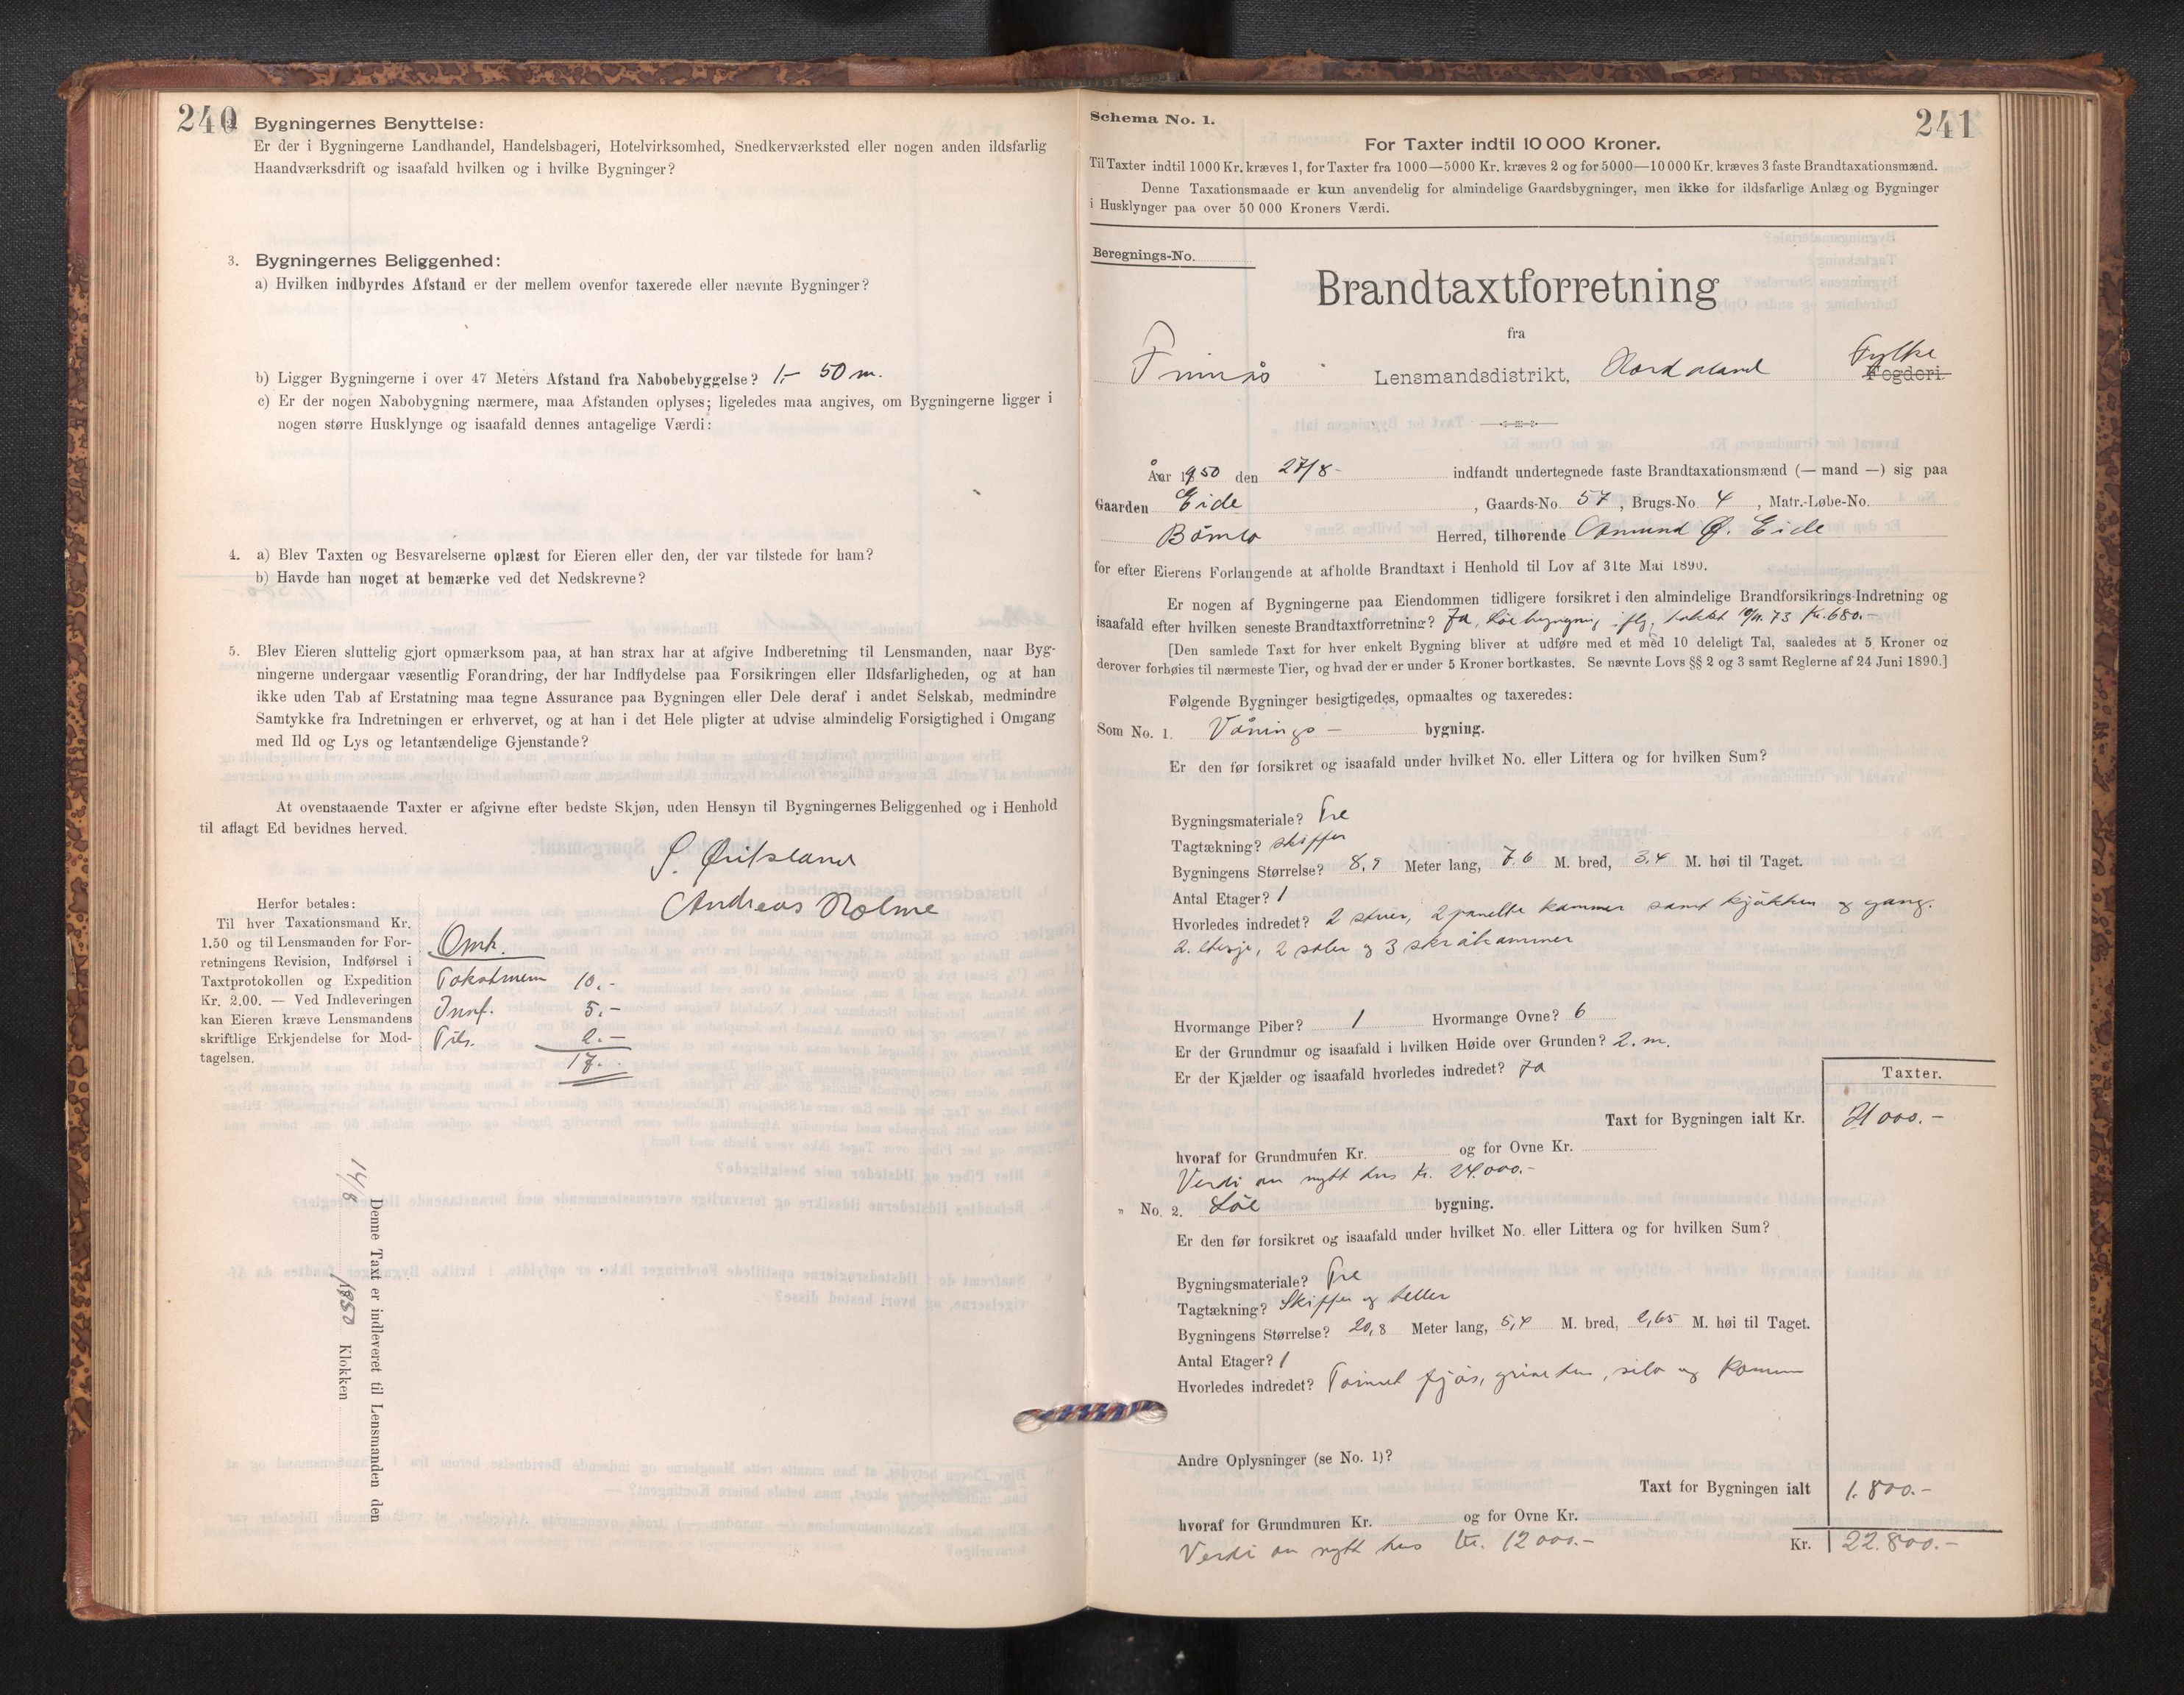 240
2. Bygningernes Benyttelse:
Er der i Bygningerne Landhandel, Handelsbageri, Hotelvirksomhed, Snedkerværksted eller nogen anden ildsfarlig
Haandværksdrift og isaafald hvilken og i hvilke Bygninger?
3. Bygningernes Beliggenhed:
a) Hvilken indbyrdes Afstand er der mellem ovenfor taxerede eller nævnte Bygninger?
b) Ligger Bygningerne i over 47 Meters Afstand fra Nabobebyggelse? 1,- 50 m.
c) Er der nogen Nabobygning nærmere, maa Afstanden oplyses; ligeledes maa angives, om Bygningerne ligger i
nogen større Husklynge og isaafald dennes antagelige Værdi:
4. a) Blev Taxten og Besvarelserne oplæst for Eieren eller den, der var tilstede for ham?
b) Havde han noget at bemærke ved det Nedskrevne?
5. Blev Eieren sluttelig gjort opmærksom paa, at han strax har at afgive Indberetning til Lensmanden, naar Byg-
ningerne undergaar væsentlig Forandring, der har Indflydelse paa Forsikringen eller Ildsfarligheden, og at han
ikke uden Tab af Erstatning maa tegne Assurance paa Bygningen eller Dele deraf i andet Selskab, medmindre
Samtykke fra Indretningen er erhvervet, og at han i det Hele pligter at udvise almindelig Forsigtighed i Omgang
med Ild og Lys og letantændelige Gjenstande?
At ovenstaaende Taxter er afgivne efter bedste Skjøn, uden Hensyn til Bygningernes Beliggenhed og i Henhold
til aflagt Ed bevidnes herved.
Andreas Holme
Herfor betales:
Til hver Taxationsmand Kr.
1.50 og til Lensmanden for For-
retningens Revision, Indførsel i
Taxtprotokollen og Expedition
Kr. 2.00. — Ved Indleveringen
kan Eieren kræve Lensmandens
skriftlige Erkjendelse for Mod-
tagelsen.
Omk.
Takstmenn 10.-
Innf. 5.-
2.-
17.-
Denne Taxt er indleveret til Lensmanden den
14/8 1950 Klokken
241
Schema No. 1.
For Taxter indtil 10 000 Kroner.
Til Taxter indtil 1000 Kr. kræves 1, for Taxter fra 1000—5000 Kr. kræves 2 og for 5000—10 000 Kr. kræves 3 faste Brandtaxationsmænd.
Denne Taxationsmaade er kun anvendelig for almindelige Gaardsbygninger, men ikke for ildsfarlige Anlæg og Bygninger
i Husklynger paa over 50 000 Kroners Værdi.
Beregnings-No.
Brandtaxtforretning
fra
Finnås Lensmandsdistrikt, Hordaland Fylke Fogderi.
Aar 1950 den 27/8- indfandt undertegnede faste Brandtaxationsmænd (— mand —) sig paa
Gaarden Eide, Gaards-No. 57, Brugs-No. 4, Matr.-Løbe-No.
Bømlo Herred, tilhørende Amund Ø. Eide
for efter Eierens Forlangende at afholde Brandtaxt i Henhold til Lov af 31te Mai 1890.
Er nogen af Bygningerne paa Eiendommen tidligere forsikret i den almindelige Brandforsikrings-Indretning og
isaafald efter hvilken seneste Brandtaxtforretning? Ja, løebygning iflg. takst 10/11.73 Kr. 680.-
[Den samlede Taxt for hver enkelt Bygning bliver at udføre med et med 10 deleligt Tal, saaledes at 5 Kroner og
derover forhøies til nærmeste Tier, og hvad der er under 5 Kroner bortkastes. Se nævnte Lovs §§ 2 og 3 samt Reglerne af 24 Juni 1890.]
Følgende Bygninger besigtigedes, opmaaltes og taxeredes:
Som No. 1. Vånings- bygning.
Er den før forsikret og isaafald under hvilket No. eller Littera og for hvilken Sum?
Bygningsmateriale? Tre
Tagtækning? Skiffer
Bygningens Størrelse? 8,9 Meter lang, 7,6 M. bred, 3,4 M. høi til Taget.
Antal Etager? 1
Hvorledes indredet? 2 stuer, 2 panelte kammer samt kjøkken og gang.
2. etasje, 2 saler og 3 skråkammer
Hvormange Piber? 1 Hvormange Ovne? 6
Er der Grundmur og isaafald i hvilken Høide over Grunden? 2. m.
Er der Kjælder og isaafald hvorledes indredet? Ja
Taxter.
Taxt for Bygningen ialt Kr. 21 000.-
hvoraf for Grundmuren Kr. og for Ovne Kr.
Verdi av nytt hus Kr. 24.000.-
„ No. 2. Løe bygning.
Er den før forsikret og isaafald under hvilket No. eller Littera og for hvilken Sum?
Bygningsmateriale? Tre
Tagtækning? Skiffer og heller
Bygningens Størrelse? 20,8 Meter lang, 5,4 M. bred, 2,65 M. høi til Taget.
Antal Etager? 1
Hvorledes indredet? Tømret fjøs, grisehus, silo og
Andre Oplysninger (se No. 1)?
Taxt for Bygningen ialt 1.800.-
hvoraf for Grundmuren Kr. og for Ovne Kr.
Verdi av nytt hus Kr. 12 000.-
Kr. 22.800.-